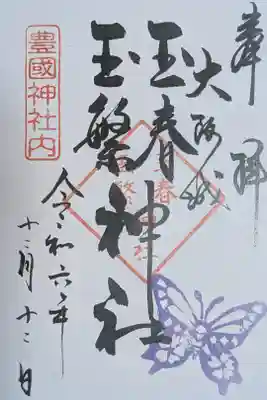 奉拝
大阪城
玉春
玉繁神社
豊國神社内
令和六年
十二月十二日